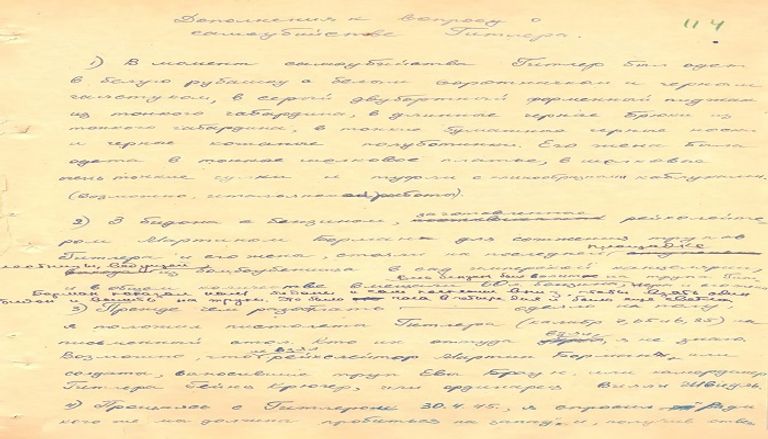 Дополнения к вопросу о
самоубийстве Гитлера.
114
1) В момент самоубийства Гитлер был одет
в белую рубашку с белым воротничком и черным
галстуком, в серый двубортный форменный пиджак
из тонкого габардина, в длинные черные брюки из
тонкого габардина, в тонкие бумажные черные носки
и черные кожаные полуботинки. Его жена была
одета в тонкое шелковое платье, в шелковые
очень тонкие чулки и туфли с каблуками
(возможно, итальянской работы).
2) 3 бидона с бензином, заготовленные рейхслейте-
ром Мартином Борманом для сожжения трупов
Гитлера и его жены, стояли на последней площадке
лестницы, из бомбоубежища в сад имперской канцелярии,
и в общем количестве вмещали 60 бензина
Борман
и вылить на трупы. Это было часа в четыре дня и было еще светло
3) Прежде чем
я положил пистолеты Гитлера (калибр 7,65 и 6,35) на
письменный стол. Кто их оттуда взял, я не знаю.
Возможно, что их взял рейхслейтер Мартин Борман, или
солдаты, выносившие труп Евы Браун или камердинер
Гитлера Гейнц Крюгер, или ординарец Вилли
4) Прощаясь с Гитлером 30.4.45., я спросил ради
кого же мы должны пробиться на запад, и, получив ответ